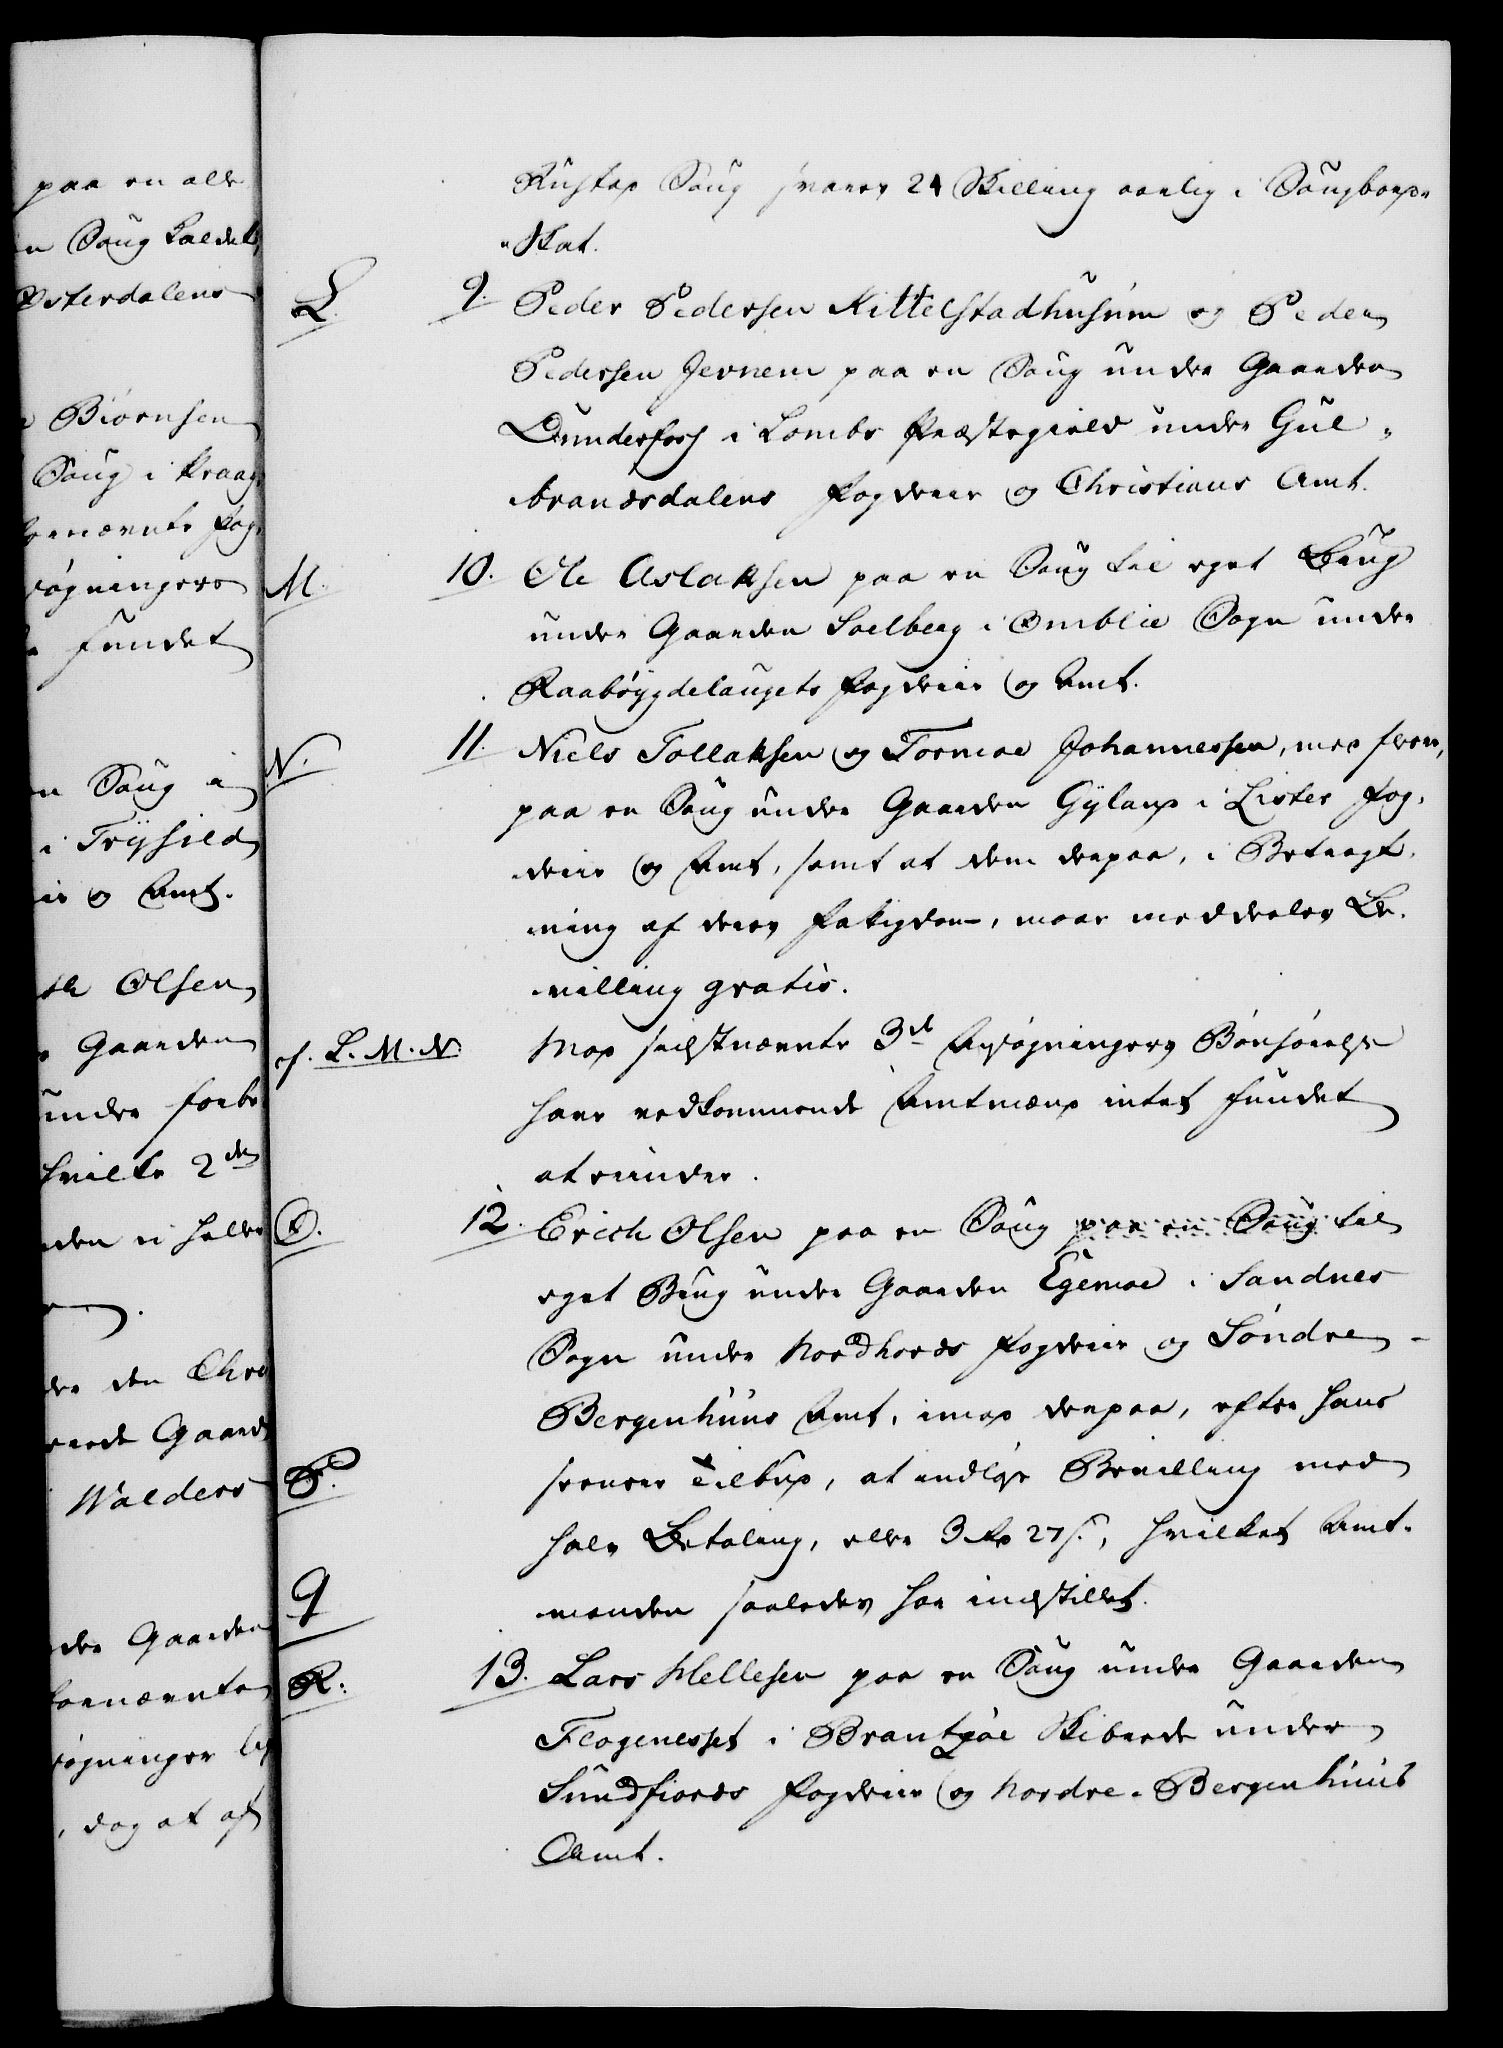 paa en elv
n Saug kaldet
Østerdalens
Biørnsen
Saug i Kraag
ornævnte Fog
søgningers
fundet
n Saug i
i Trysild
ie og Amt.
Olsen
Gaarden
under forbe
hvilke 2de
den ei heller
der den Chri
rede Gaard
Walders
der Gaarden
ornævnte
søgninger
dog at af
Rustad Saug svarer 24 Skilling aarlig i Saugbords-
-Skat.
L. 9. Peder Pedersen Kittelstadhusum og Peder
Pedersen Jevnem paa en Saug under Gaarden
Dunderfors i Lombs Præstegield under Gul-
brandsdalens Fogderie og Christians Amt.
M. 10. Ole Aslaksen paa en Saug til eget Brug
under Gaarden Soelberg i Omblie Sogn under
Raabøygdelaugets Fogderie og Amt.
N. 11. Niels Tollaksen og Tormoe Johannessen, med fleere,
paa en Saug under Gaarden Gyland i Lister Fog-
derie og Amt, samt at dem derpaa, i Betragt-
ning af deres Fattigdom, maae meddeles Be-
villing gratis.
cf. L. M. N. Mod sidstnævnte 3de Ansøgningers Bønhørelse
have vedkommende Amtmænd intet fundet
at erindre.
O. 12. Erich Olsen paa en Saug paa en Saug til
eget Brug under Gaarden Egemoe i Sandnes
Sogn under Nordhords Fogderie og Søndre-
Bergenhuus Amt, imod derpaa, efter hans
P. Tilbud, at indløse Bevilling med
halv Betaling, eller 3 Rd 27 s., hvilket Amt-
q manden saaledes har indstillet.
R. 13. Lars Mellesen paa en Saug under Gaarden
Flogenesset i Brantzøe Skibrede under
Sundfiords Fogderie og Nordre-Bergenhuus
Amt.